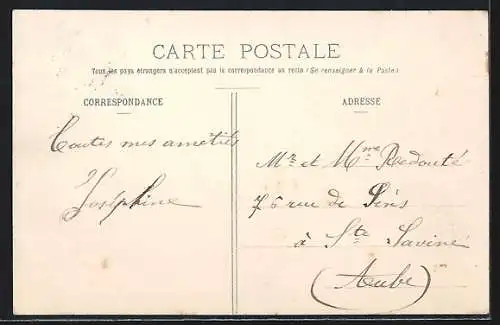 CARTE POSTALE
Tous les pays étrangers n'acceptent pas la correspondance au recto (Se renseigner à la Poste)
CORRESPONDANCE
ADRESSE
Toutes mes amétiés
Joséphine
Mr et Mme Redouté
76 rue de
à Ste Savine
(Aube)